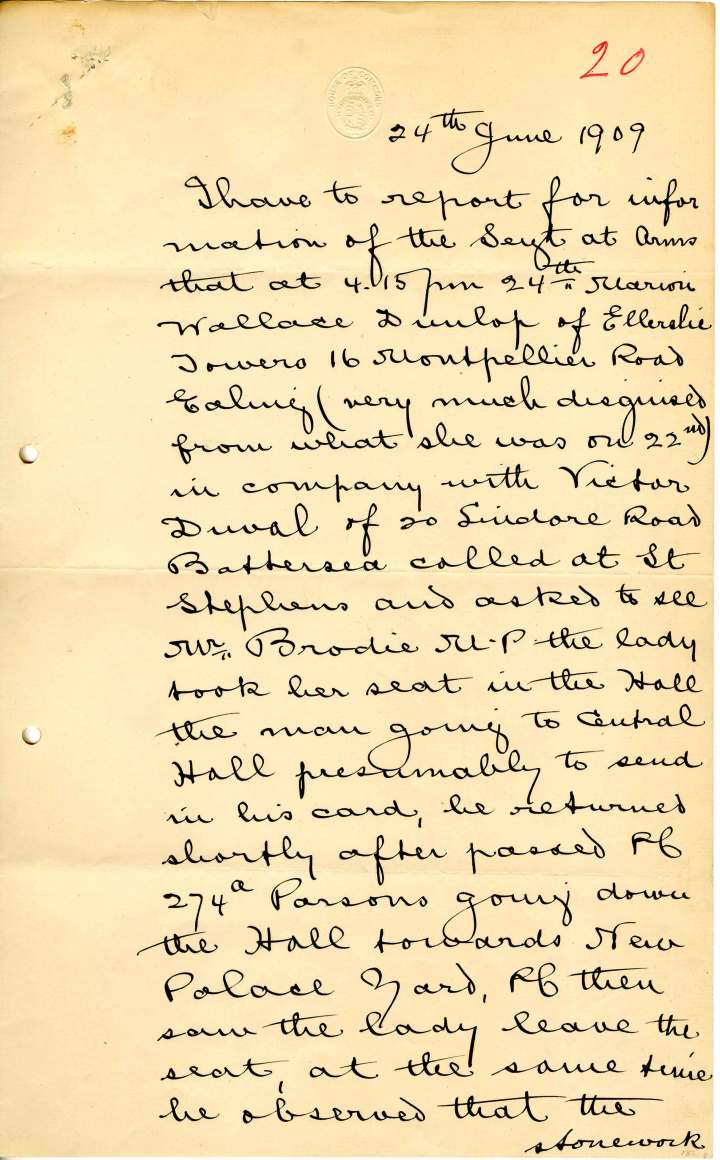 20
24th June 1909
I have to report for infor
mation of the Sergt at Arms
that at 4.15 pm 24th Marion
Wallace Dunlop of Ellerslie
Towers 16 Montpellier Road
Ealing (very much disguised
from what she was on 22nd)
in company with Victor
Duval of 20 Lindore Road
Battersea called at St
Stephens and asked to see
Mr. Brodie M.P the lady
took her seat in the Hall
the man going to Central
Hall presumably to send
in his card, he returned
shortly after passed PC
274a Parsons going down
the Hall towards New
Palace Yard, PC then
saw the lady leave the
seat, at the same time
he observed that the
stonework